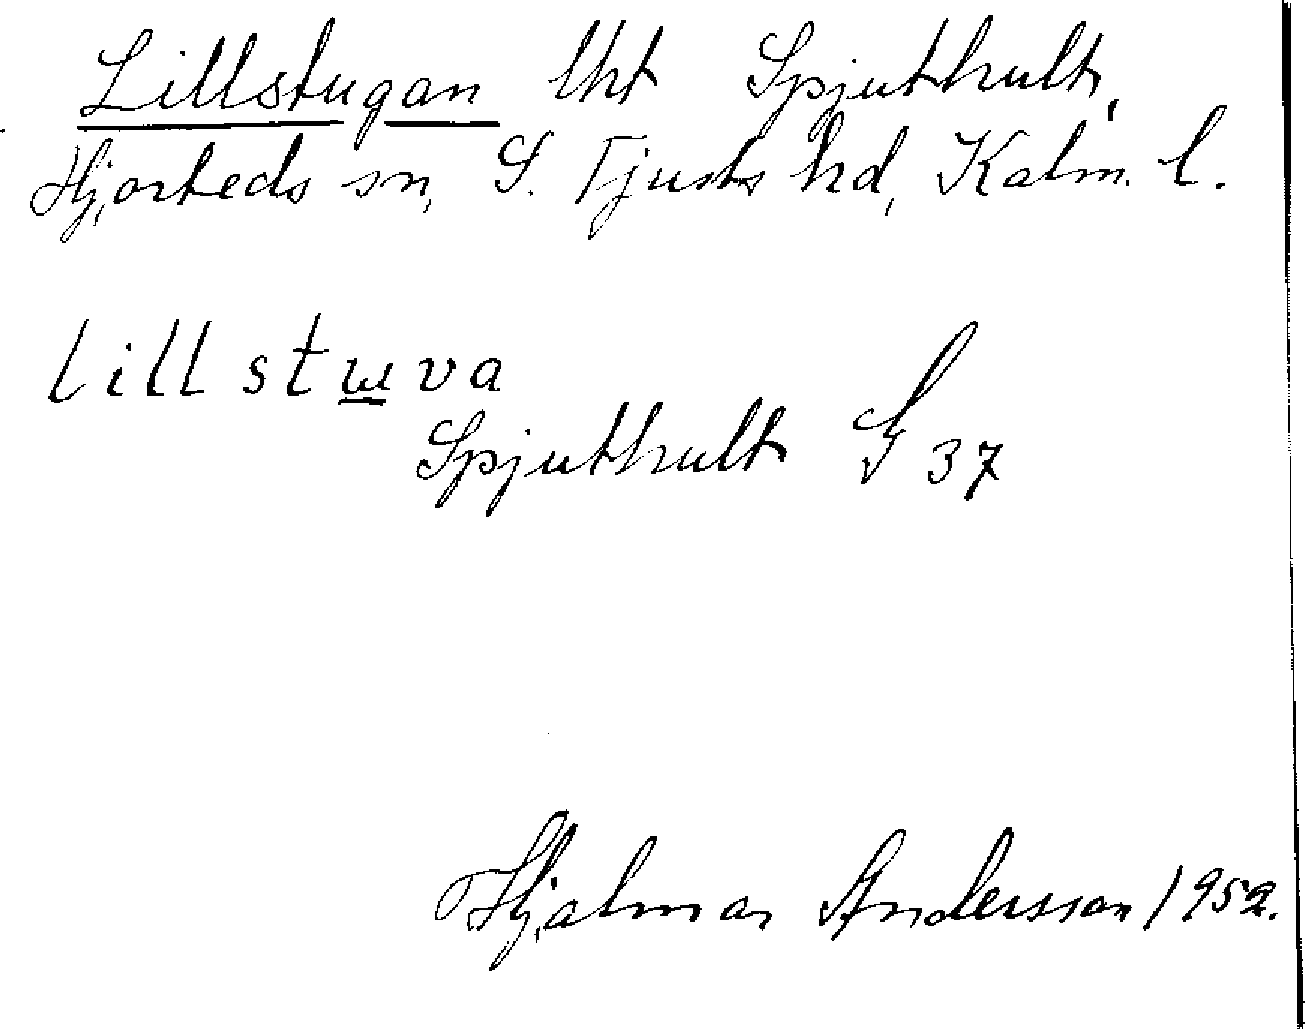 Lillstugan lht Spjuthult,
Hjorteds sn, S. Tjusts hd, Kalm. l.
lillstɯva
Spjuthult 37
Hjalmar Andersson 1952.